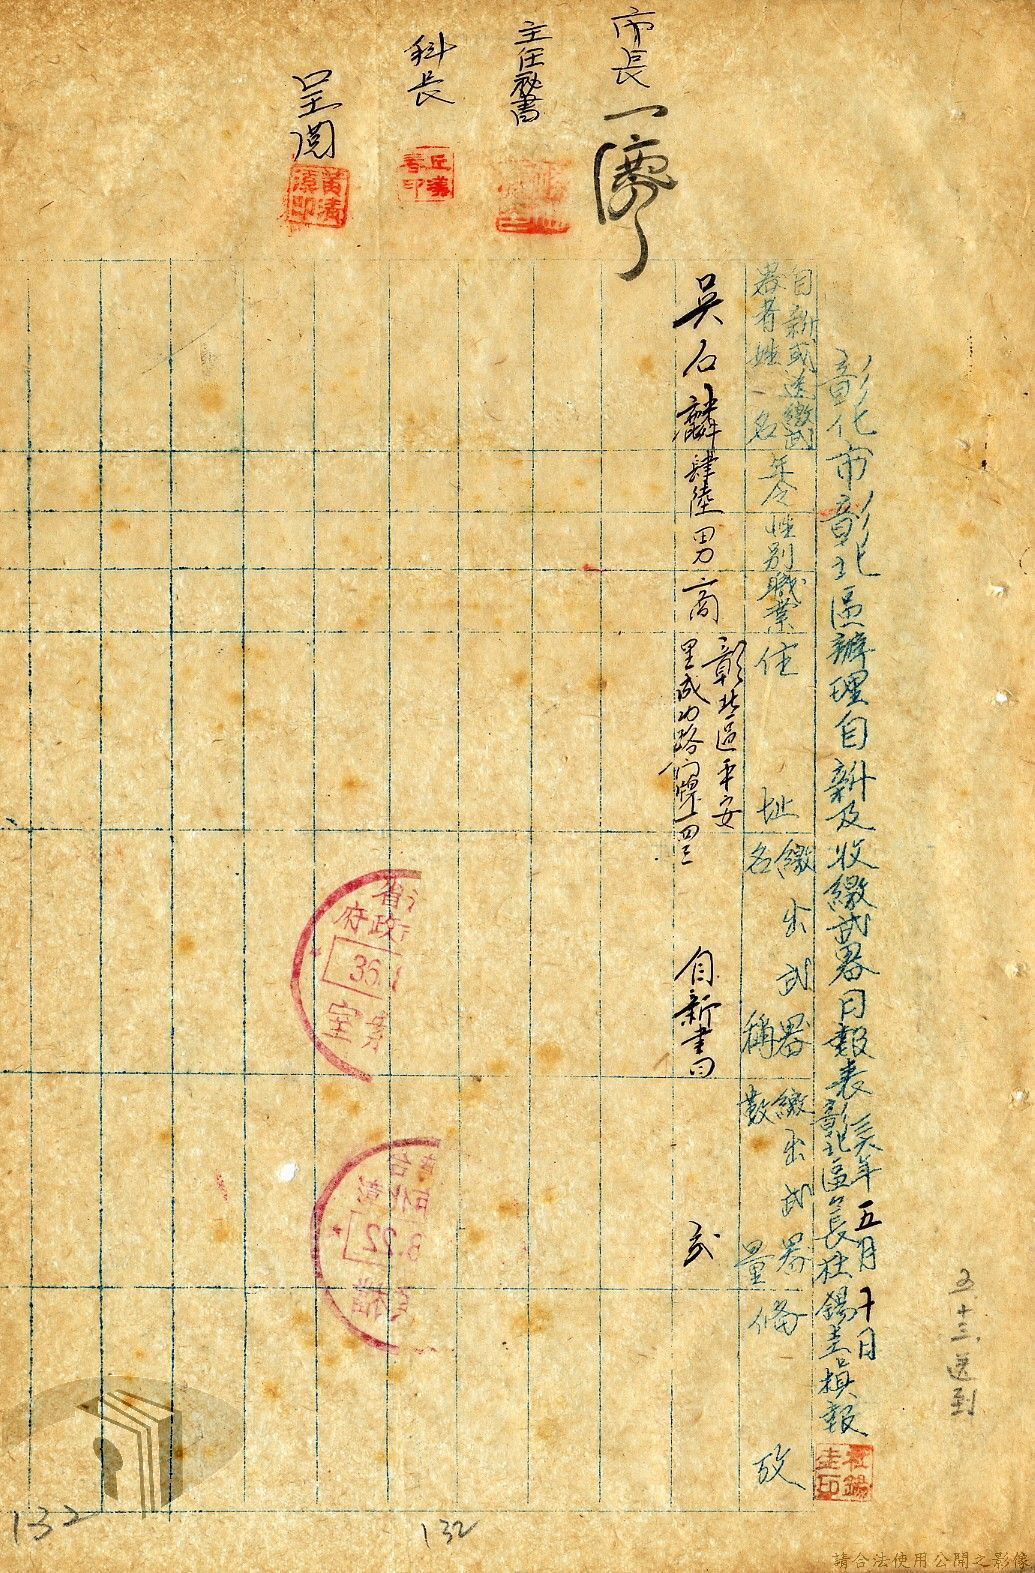 彰化市彰北區辦理自新及收繳武器日報表
三六年五月十日
彰北區長杜錫圭填報
杜錫圭印
自新或送繳武器者姓名
年令
性別
職業
住址
繳出武器名稱
繳出武器數量
備攷
吳石麟
肆陸
男
商
彰北區平安里成功路門牌一四三
自新書
貳
市長
廖
主任秘書
科長
呈閱
省
政府
36.
室
8.22
五十三送到
132
132
請合法使用公開之影像